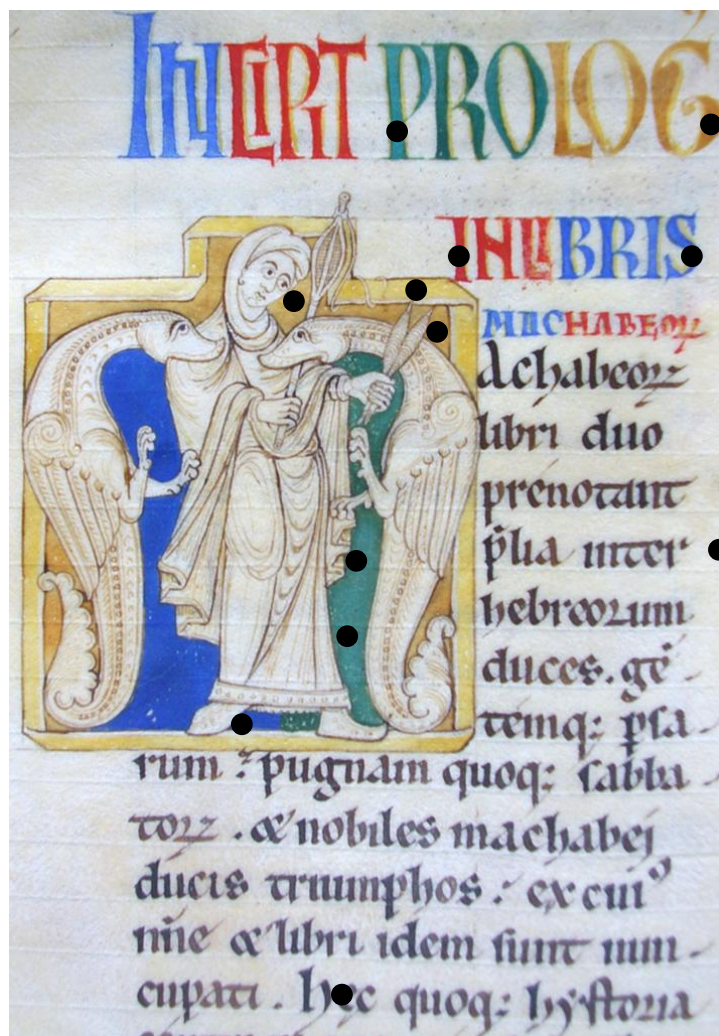 INCIPIT PROLOG
IN LIBRIS
MACHABEOꝜ
achabeoꝝ
libri duo
prenotant
p̄lia inter
hebreorum
duces. gē
temq: psa
rum ⁊ pugnam quoq: sabba
toꝝ . & nobiles machabei
ducis triumphos . ex cui᷒
nn̄e & libri idem sunt nun
cupati . quoq: hystoria